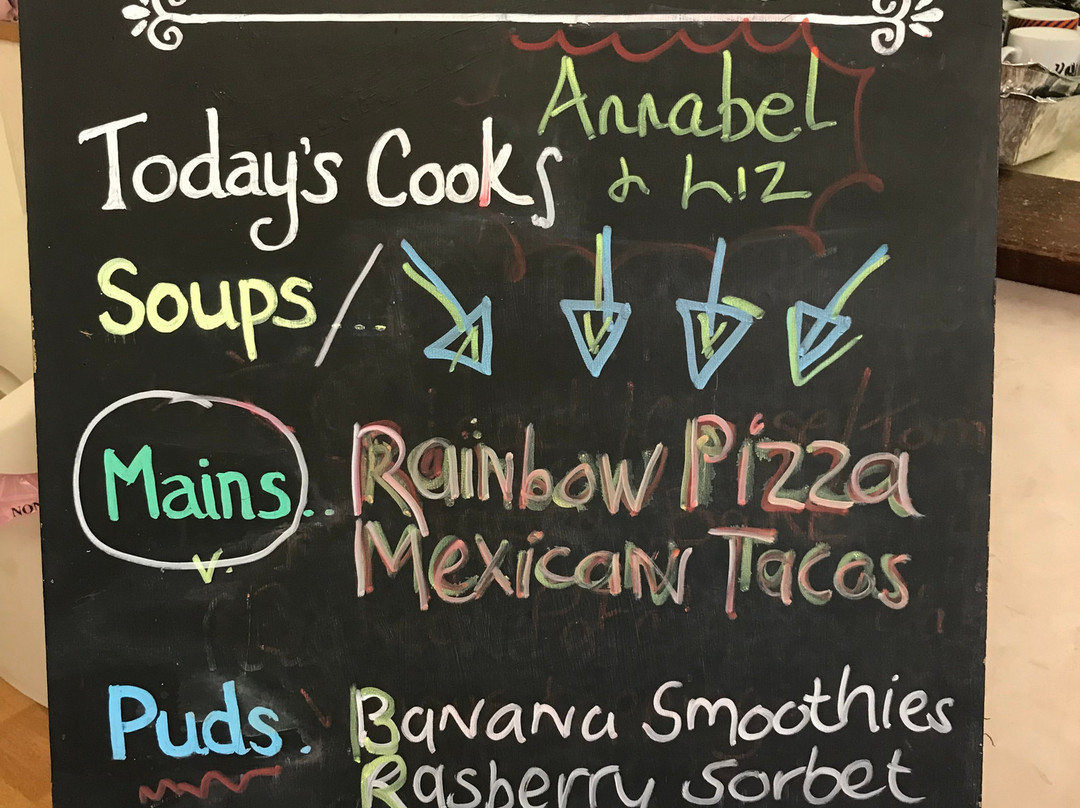 Today's Cooks Annabel
& Liz
Soups /
Mains.. Rainbow Pizza
Mexican Tacos
Puds. Banana Smoothies
Rasberry Sorbet